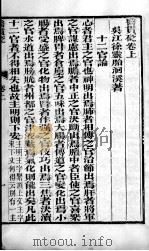 醫貫砭卷上
吳江徐靈胎洄溪著
十二官論
心者君主之官神明出焉肺者相傅之官治節出焉肝者將軍
之官謀慮出焉膽者中正之官決斷出焉膻中者臣使之官喜
樂出焉脾胃者倉廩之官五味出焉大腸者傳道之官變化出焉小
腸者受盛之官化物出焉腎者作強之官伎巧出焉三焦者決瀆
之官水道出焉膀胱者州都之官津液藏焉氣化則能出矣凡此
十二官者不得相失也故主明則下安